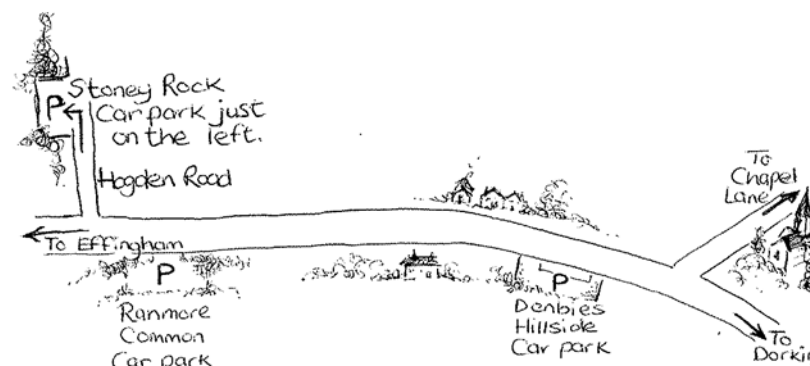 Stoney Rock
P Car park just
on the left.
Hogden Road
To Effingham
P
Ranmore
Common
Car park
P
Denbies
Hillside
Car park
To
Chapel
Lane
To
Dorkin